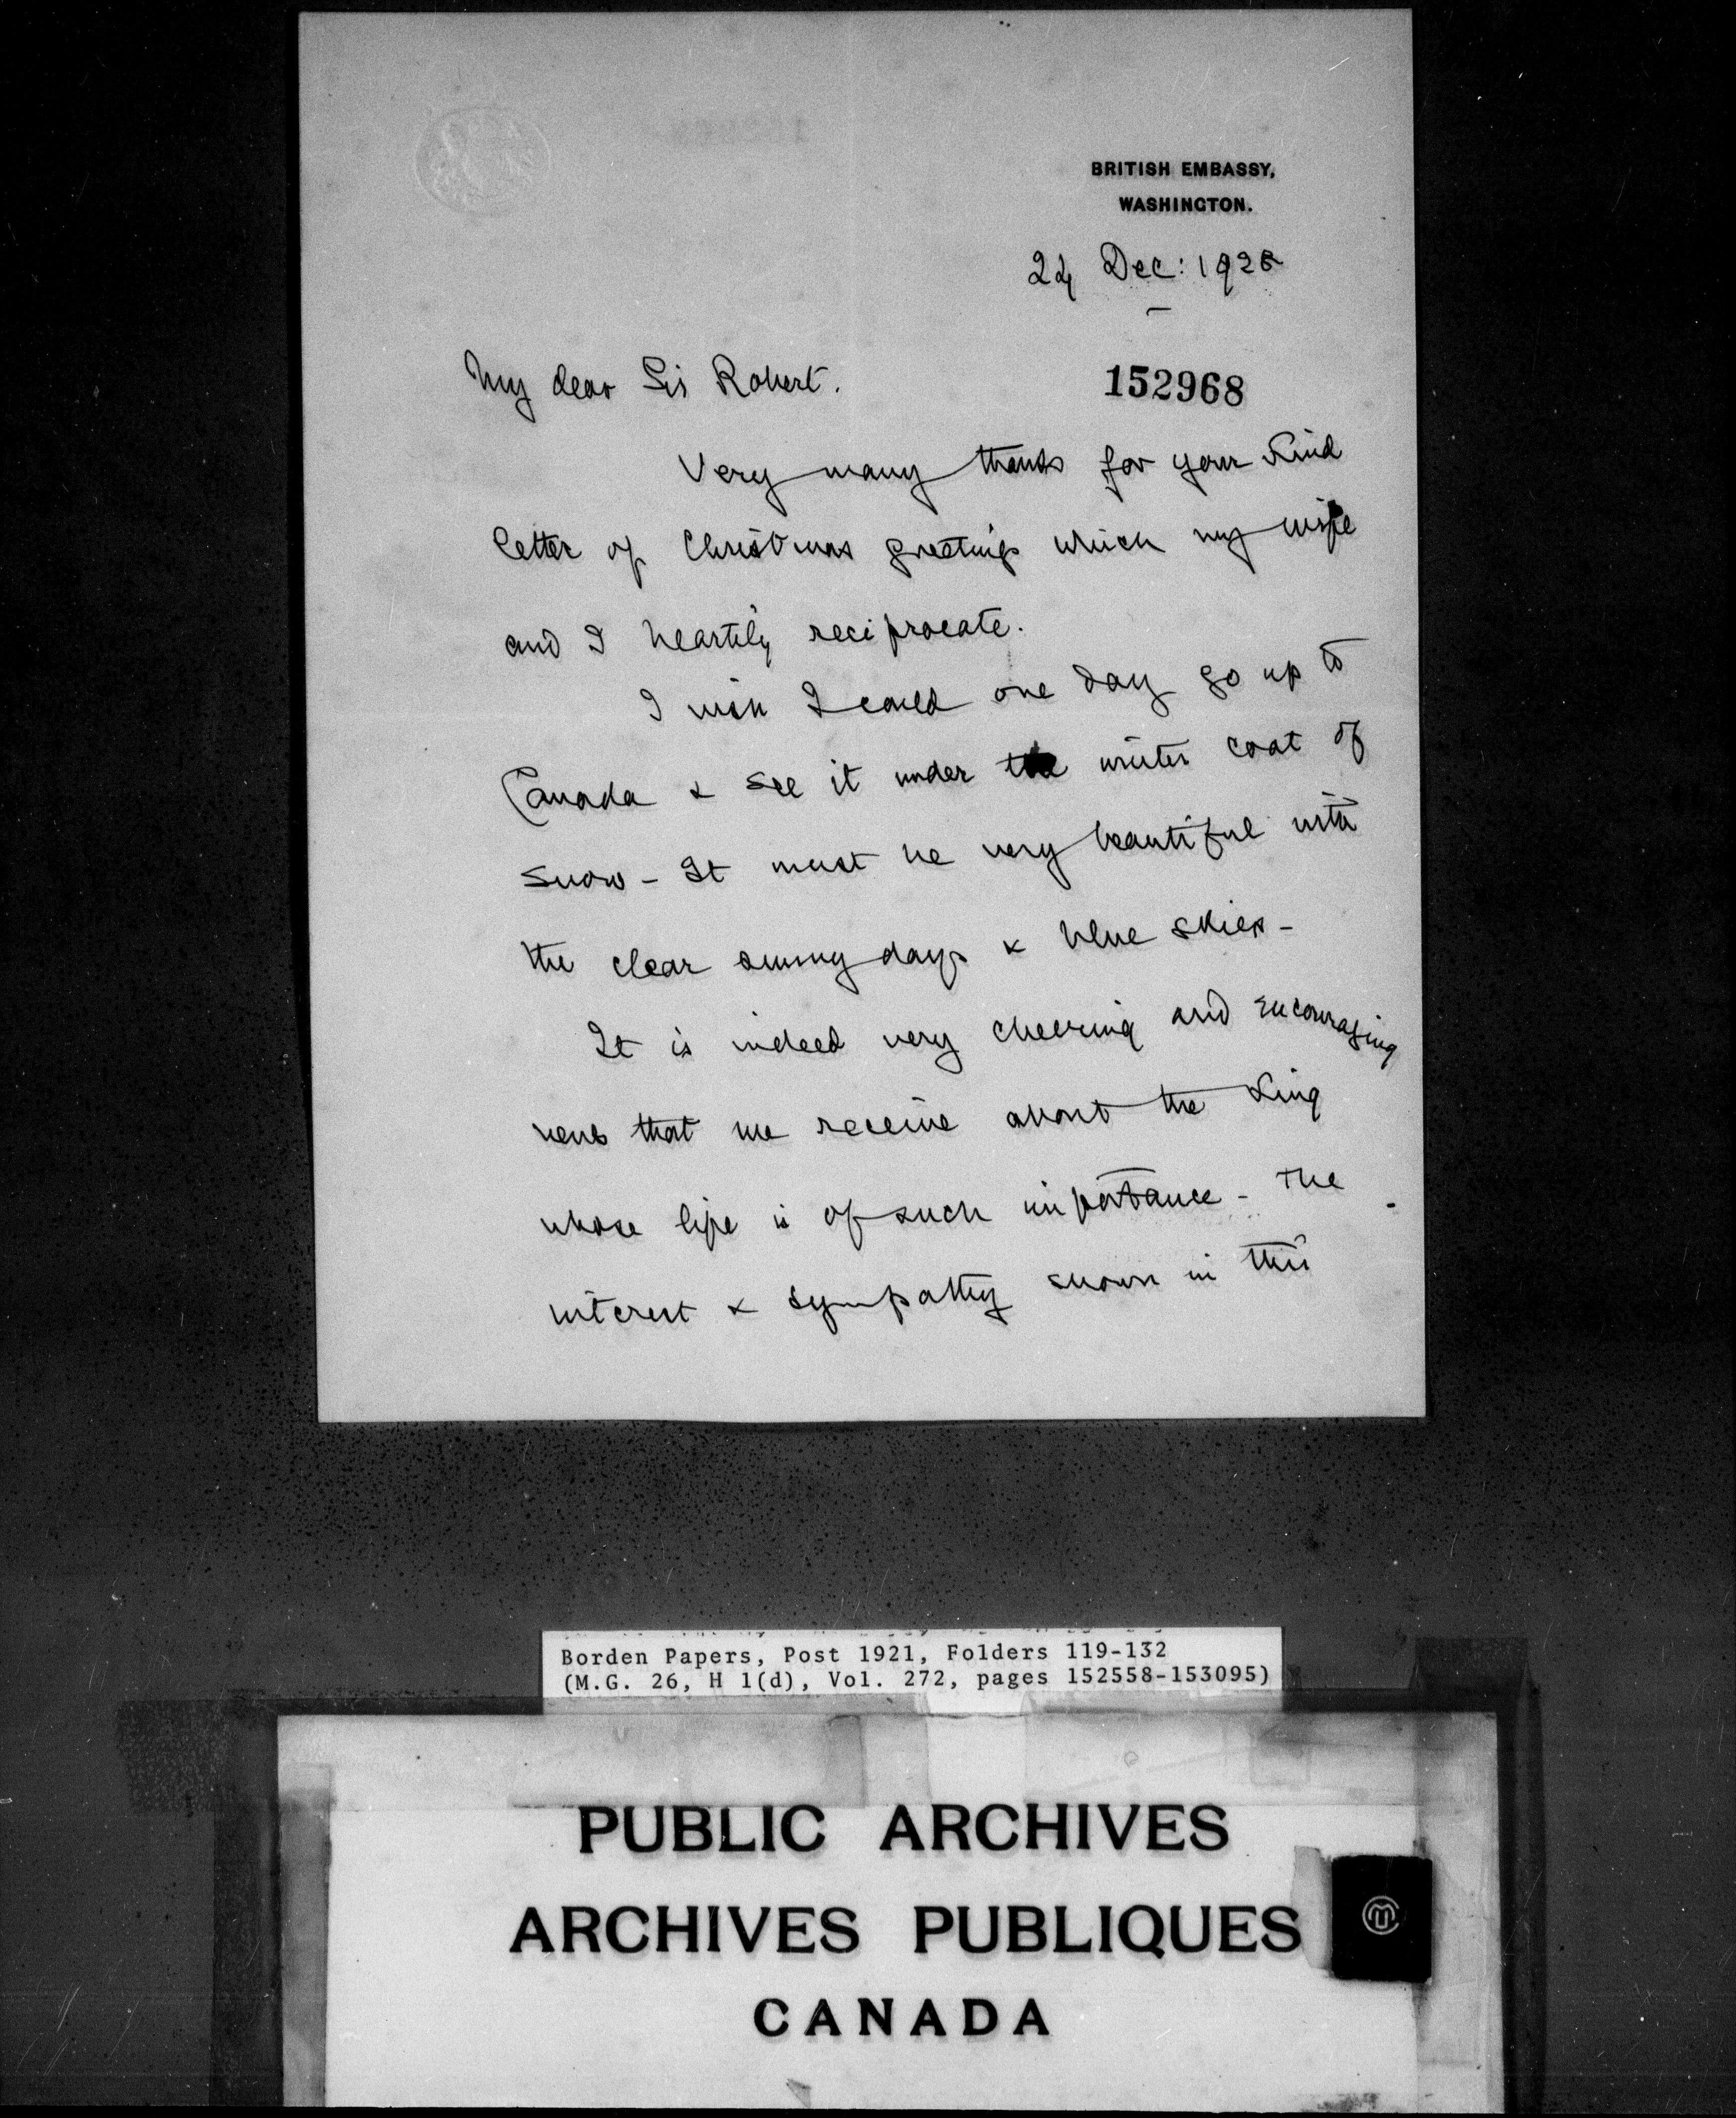 BRITISH EMBASSY,
WASHINGTON.
24 Dec: 1928
My dear Sir Robert.
152968
Very many thanks for your kind
letter of Christmas greetings which my wife
and I heartily reciprocate.
I wish I could one day go up to
Canada & see it under the winter coat of
snow - It must be very beautiful with
the clear sunny days & blue skies -
It is indeed very cheering and encouraging
news that we receive about the King
whose life is of such importance - The
interest & sympathy shown in this
Borden Papers, Post 1921, Folders 119-132
(M.G. 26, H 1(d), Vol. 272, pages 152558-153095)
PUBLIC ARCHIVES
ARCHIVES PUBLIQUES
CANADA